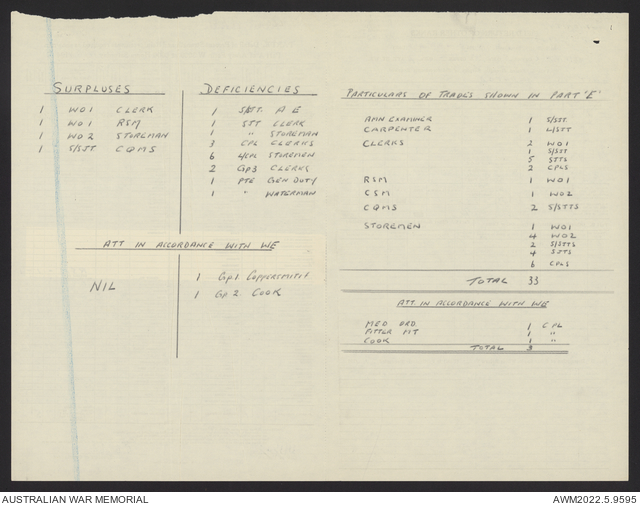 SURPLUSES
1 WO1 CLERK
1 WO1 RSM
1 WO2 STOREMAN
1 S/SJT CQMS
DEFICIENCIES
1 S/SJT. A E
1 SJT CLERK
1 " STOREMAN
3 CPL CLERKS
6 L/CPL STOREMEN
2 GP3 CLERKS
1 PTE GEN DUTY
1 " WATERMAN
ATT IN ACCORDANCE WITH WE
NIL
1 Gp1. COPPERSMITH
1 Gp 2. COOK
PARTICULARS OF TRADES SHOWN IN PART 'E'
AMN EXAMINER 1 S/SJT
CARPENTER 1 L/SJT
CLERKS 2 WO1
1 S/SJT
5 SJTS
2 CPLS
RSM 1 WO1
CSM 1 WO2
CQMS 2 S/SJTS
STOREMEN 1 WO1
4 WO2
2 S/SJTS
4 SJTS
6 CPLS
TOTAL 33
ATT. IN ACCORDANCE WITH WE
MED ORD 1 CPL
FITTER MT 1 "
COOK 1 "
TOTAL 3
AUSTRALIAN WAR MEMORIAL
AWM2022.5.9595